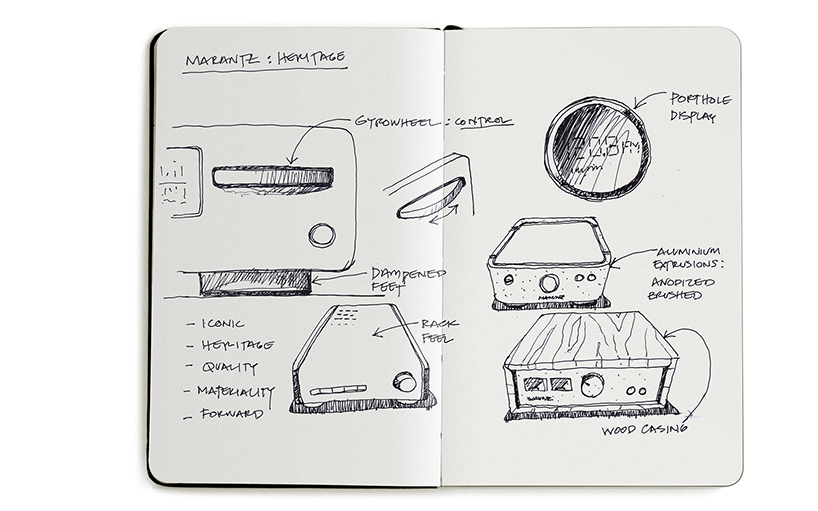 MARANTZ : HERITAGE
GYROWHEEL : CONTROL
DAMPENED
FEET
- ICONIC
- HERITAGE
- QUALITY
- MATERIALITY
- FORWARD
RACK
FEEL
PORTHOLE
DISPLAY
ALUMINIUM
EXTRUSIONS:
ANODIZED
BRUSHED
WOOD CASING